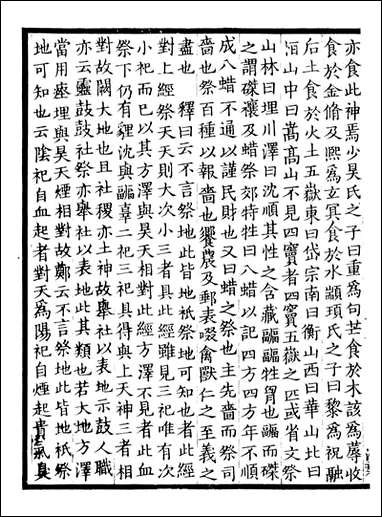 亦食此神焉少昊氏之子曰重爲句芒食於木該爲蓐收
食於金脩及熙爲玄冥食於水顓頊氏之子曰黎爲祝融
后土食於火土五嶽東曰岱宗南曰衡山西曰華山北曰
恒山中曰嵩高山不見四竇者四竇五嶽之匹或省文祭
山林曰埋川澤曰沈順其性之含藏疈疈牲胷也疈而磔
之謂磔禳及蜡祭郊特牲曰八蜡以記四方四方年不順
成八蜡不通以謹民財也又曰蜡之祭也主先嗇而祭司
嗇也祭百種以報嗇也饗農及郵表畷禽獸仁之至義之
盡也　釋曰云不言祭地此皆地祇祭地可知也者此經
對上經祭天天則大次小三者具此經雖見三祀唯有次
小祀而已以其方澤與昊天相對此經方澤不見者此血
祭下仍有貍沈與疈辜二祀三祀具得與上天神三者相
對故闕大地也且社稷亦土神故舉社以表地示鼓人職
亦云靈鼓鼓社祭亦舉社以表地此其類也若大地方澤
當用瘞埋與昊天煙相對故鄭云不言祭地此皆地祇祭
地可知也云陰祀自血起者對天爲陽祀自煙起貴氣臭